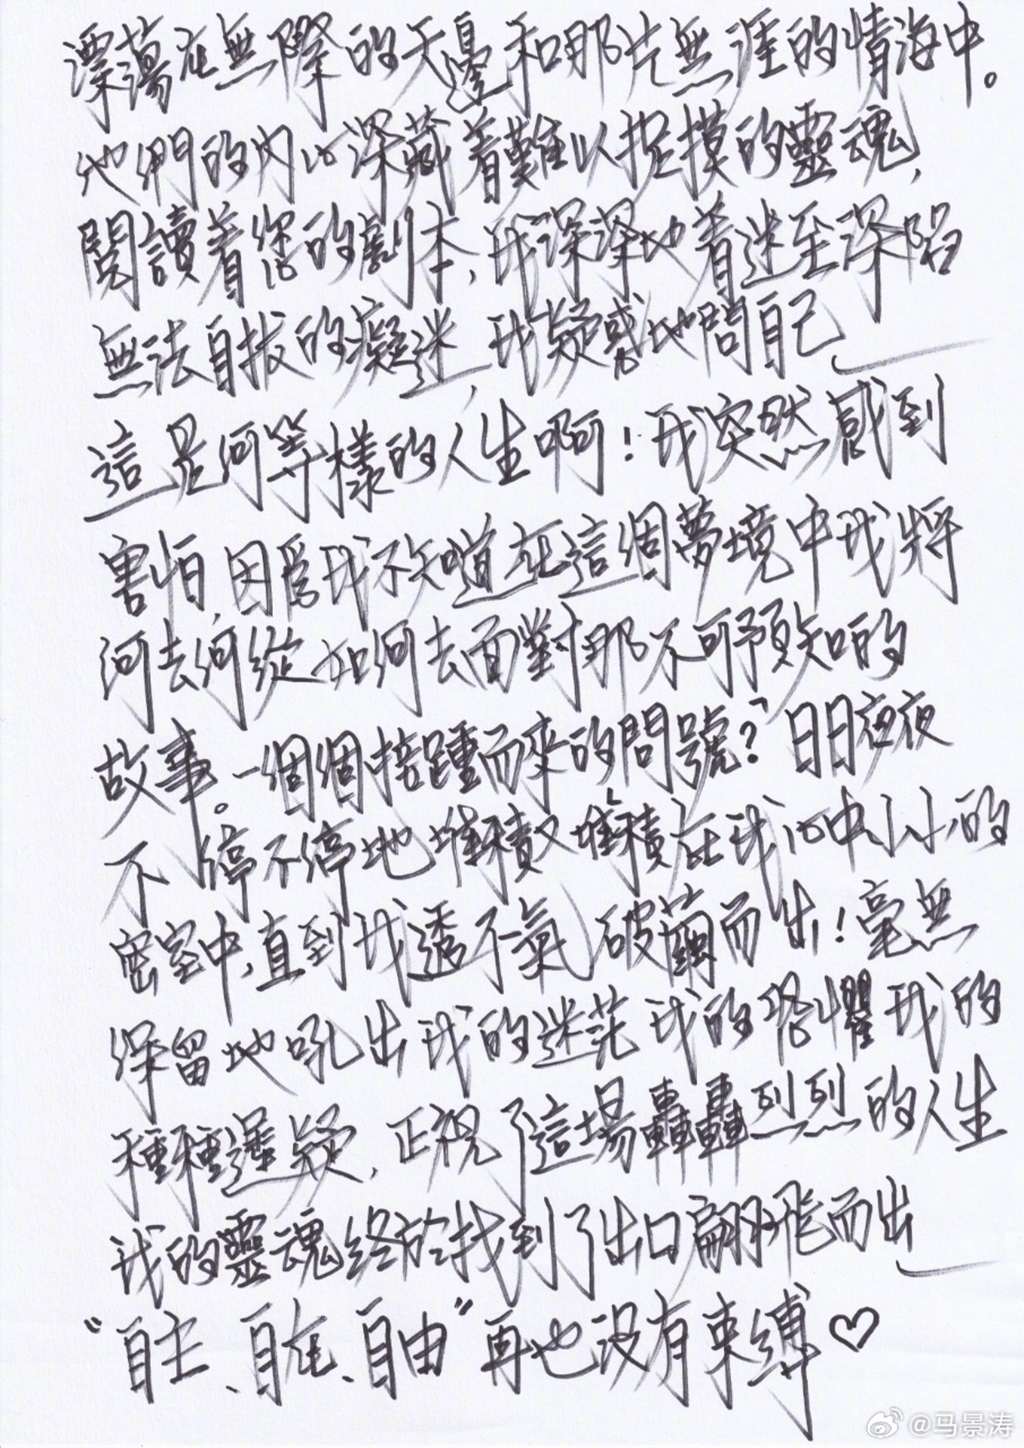 漂蕩在無際的天邊和那片無涯的情海中。
他們的內心深藏着難以捉摸的靈魂,
閱讀着您的劇本,我深深地着迷至深陷
無法自拔的癡迷,我疑惑地問自己
這是何等樣的人生啊!我突然感到
害怕,因爲我不知道在這個夢境中我將
何去何從如何去面對那不可預知的
故事。一個個接踵而來的問號?日日夜夜
不停不停地堆積又堆積在我心中小小的
密室中,直到我透不氣破繭而出!毫無
保留地吼出我的迷茫我的恐懼我的
種種遲疑,正視了這場轟轟烈烈的人生
我的靈魂終於找到了出口翩翩飛而出
“自主、自在、自由”再也没有束縛♡
@马景涛